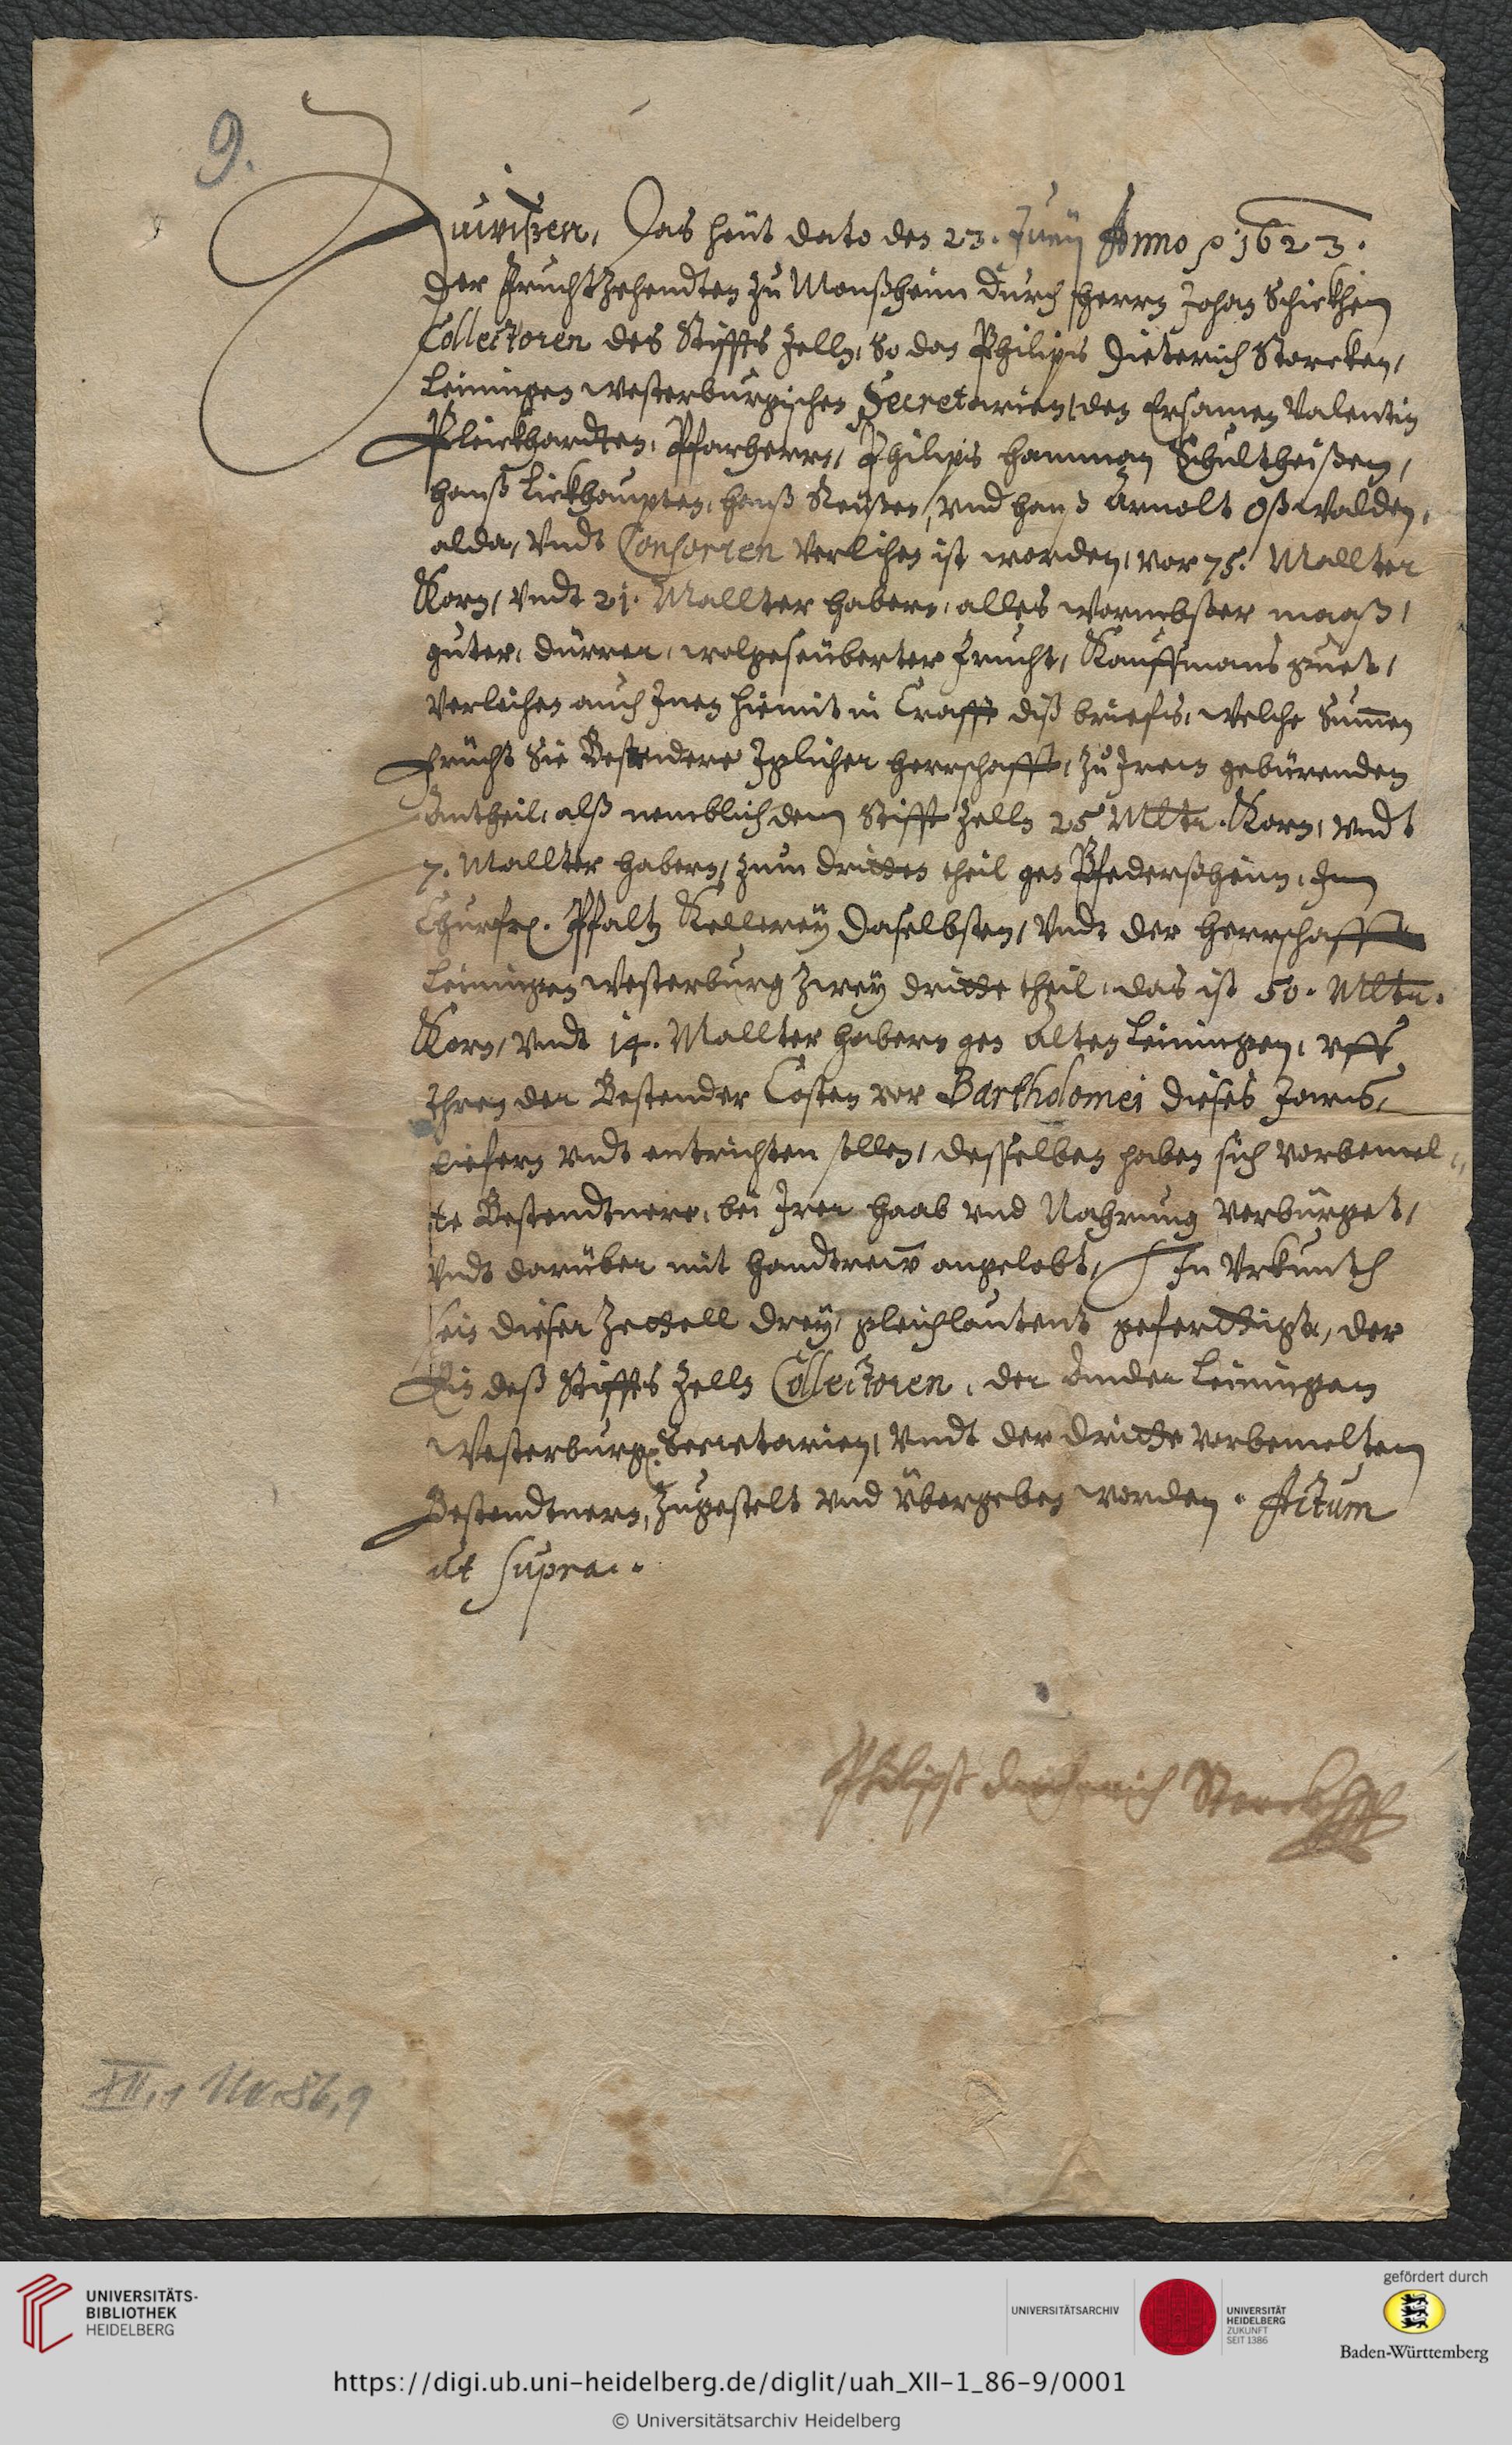 9.
Zuwißen, Das heut dato den 23. Juny Anno p 1623.
der Fruchtzehendten zu Monßheim durch Herrn Johan Schickhen
Collectoren des Stiffts Zelln, So dan Philips Dieterich Storcken,
Leiningen Westerburgischen Secretarien, den Ersamen Valentin
Pleickhardten, Pfarherrn, Philips Hamman Schultheißen,
Hanß Lickhaupten, Hanß Reußen, vnd Hanß Arnolt Oßwalden,
alda, Vndt Consorten Verlihen ist worden, vor 75. Mallter
Korn, Vndt 21. Mallter habern, alles Wormbßer maaß,
guter, dürrer, wolgeseüberter Frucht, Kauffmans guet,
Verleihen auch Inen hiemit in Crafft diß briefs, welche Summen
Frücht Sie Bestendere Iglicher herrschafft, zu Irem gebürenden
Antheil, alß nemblich dem Stifft Zelln 25 Mltr. Korn, vndt
7. Mallter habern, zum dritten theil gen Pfederßheim, Inn
Churfr. Pfaltz Kellerey daselbsten, Vndt der Herrschafft
Leiningen Westerburg zwey dritte theil, das ist 50. Mltr.
Korn, Vndt 14. Mallter habern gen Alten Leiningen, vff
Ihren der Bestender Costen vor Bartholomei dieses Jares,
liefern vndt entrichten sollen, desselben haben sich vorbemel=
te Bestendtnere, bei Irer Haab vnd Nahrung Verbürget,
Vndt darüber mit handtrew angelobt, In Vrkunth
sein dieser Zettell drey, gleichlautent gefertthigt, der
Ein deß Stiffts Zelln Collectoren, der Ander Leiningen
Westerburg. Secretarien, Vndt der dritte vorbemelten
Bestendtnern, Zugestelt vnd Übergeben worden. Actum
ut supra.
Philips Dietherich Storckh
XII,1 Nr. 86,9
UNIVERSITÄTS-
BIBLIOTHEK
HEIDELBERG
UNIVERSITÄTSARCHIV
UNIVERSITÄT
HEIDELBERG
ZUKUNFT
SEIT 1386
gefördert durch
Baden-Württemberg
https://digi.ub.uni-heidelberg.de/diglit/uah_XII-1_86-9/0001
© Universitätsarchiv Heidelberg